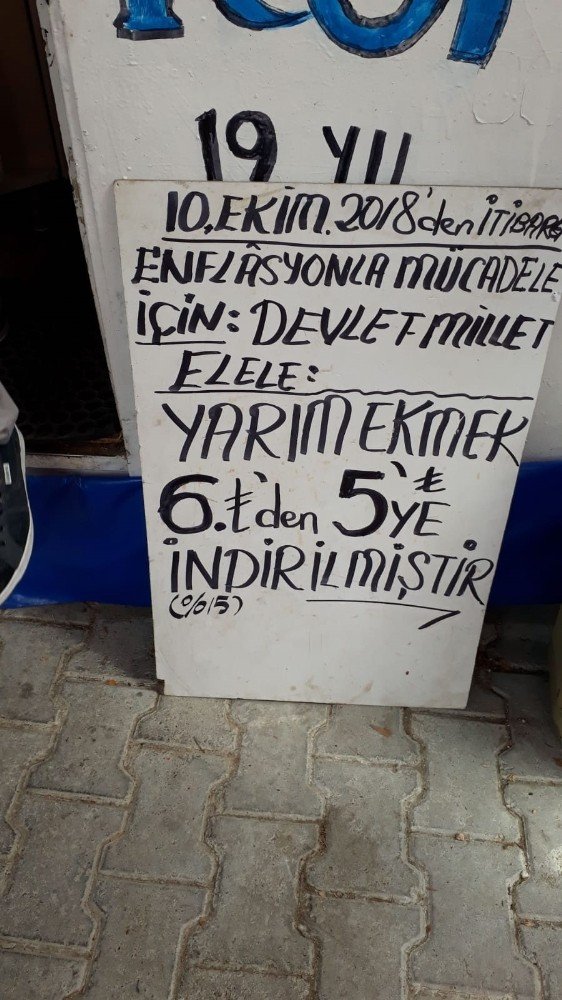 19 YIL
10.EKİM.2018'den İTİBAREN
ENFLÂSYONLA MÜCADELE
İÇİN: DEVLET MİLLET
ELELE:
YARIM EKMEK
6.₺'den 5'₺YE
İNDİRİLMİŞTİR
(%15)